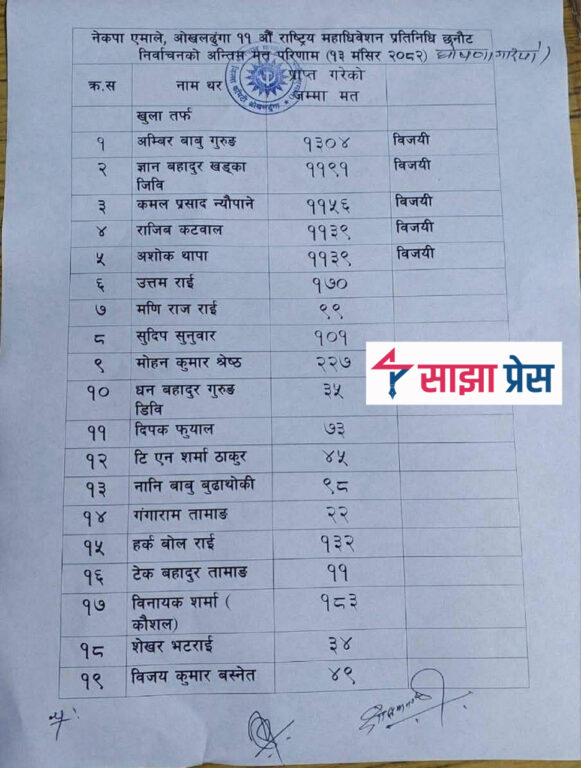 नेकपा एमाले, ओखलढुंगा ११ औं राष्ट्रिय महाधिवेशन प्रतिनिधि छनौट
निर्वाचनको अन्तिम मत परिणाम (१३ मंसिर २०८२)
क्र.स नाम थर प्राप्त गरेको
जम्मा मत
खुला तर्फ
१ अम्बिर बाबु गुरुङ १३०४ विजयी
२ ज्ञान बहादुर खड्का ११९१ विजयी
जिवि
३ कमल प्रसाद न्यौपाने ११५६ विजयी
४ राजिब कटवाल ११३९ विजयी
५ अशोक थापा ११३९ विजयी
६ उत्तम राई १७०
७ मणि राज राई ९९
८ सुदिप सुनुवार १०१
९ मोहन कुमार श्रेष्ठ २२७
साझा प्रेस
१० धन बहादुर गुरुङ ३५
डिवि
११ दिपक फुयाल ७३
१२ टि एन शर्मा ठाकुर ४५
१३ नानि बाबु बुढाथोकी ९८
१४ गंगाराम तामाङ २२
१५ हर्क बोल राई १३२
१६ टेक बहादुर तामाङ ११
१७ विनायक शर्मा ( १८३
कौशल)
१८ शेखर भटराई ३४
१९ विजय कुमार बस्नेत ४९